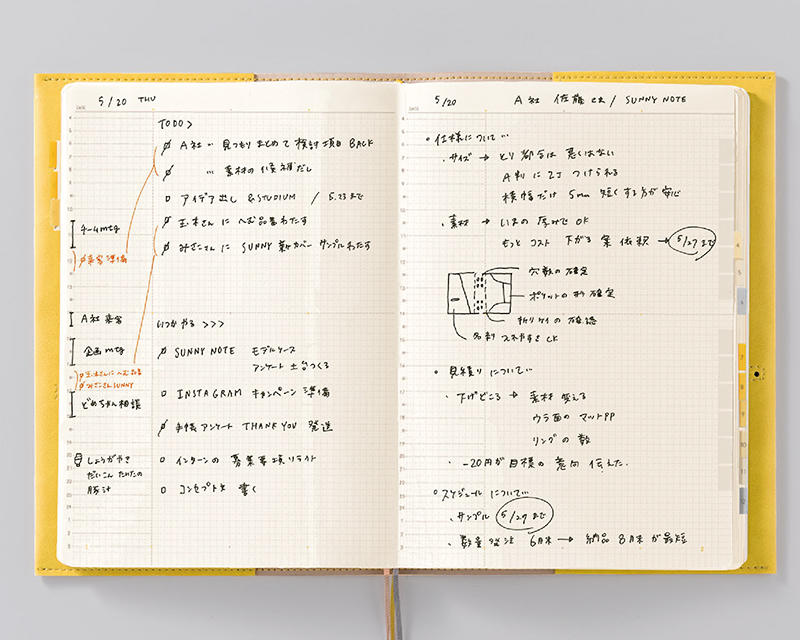 5/20 THU
TODO>
A社 〃 見つもりまとめて 検討項目 BACK
〃 素材の候補だし
アイデア出し &STUDIUM / 5.23まで
玉木さんに へむ品番わたす
みざこさんに SUNNY 新カバー サンプルわたす
チームmtg
来客準備
A社 来客
いつかやる >>>
企画mtg
SUNNY NOTE モデルケース
アンケート 土台つくる
玉木さんにへむ品番
みざこさんSUNNY
INSTAGRAM キャンペーン 準備
どめちゃん相談
手帳アンケート THANK YOU 発送
しょうがやき
だいこん たけたの
豚汁
インターンの 募集要項リライト
コンセプト文 書く
5/20 A社 佐藤さん / SUNNY NOTE
仕様について…
・サイズ → とり都合は 悪くはない
A判に 2丁 つけられる
横幅だけ 5mm 短くする方が安心
・素材 → いまの厚みで OK
もっと コスト 下がる 案 依頼 → 5/27まで
穴数の確定
ポケットの形 確定
折りケイの 確認
名刺 スベやすさ CK
見積りについて…
・下げどころ → 素材 変える
ウラ面の マットPP
リングの 数
・-20円が目標の 意向 伝えた.
スケジュールについて…
・サンプル 5/27まで
・数量発注 6月末 → 納品 8月末 が最短